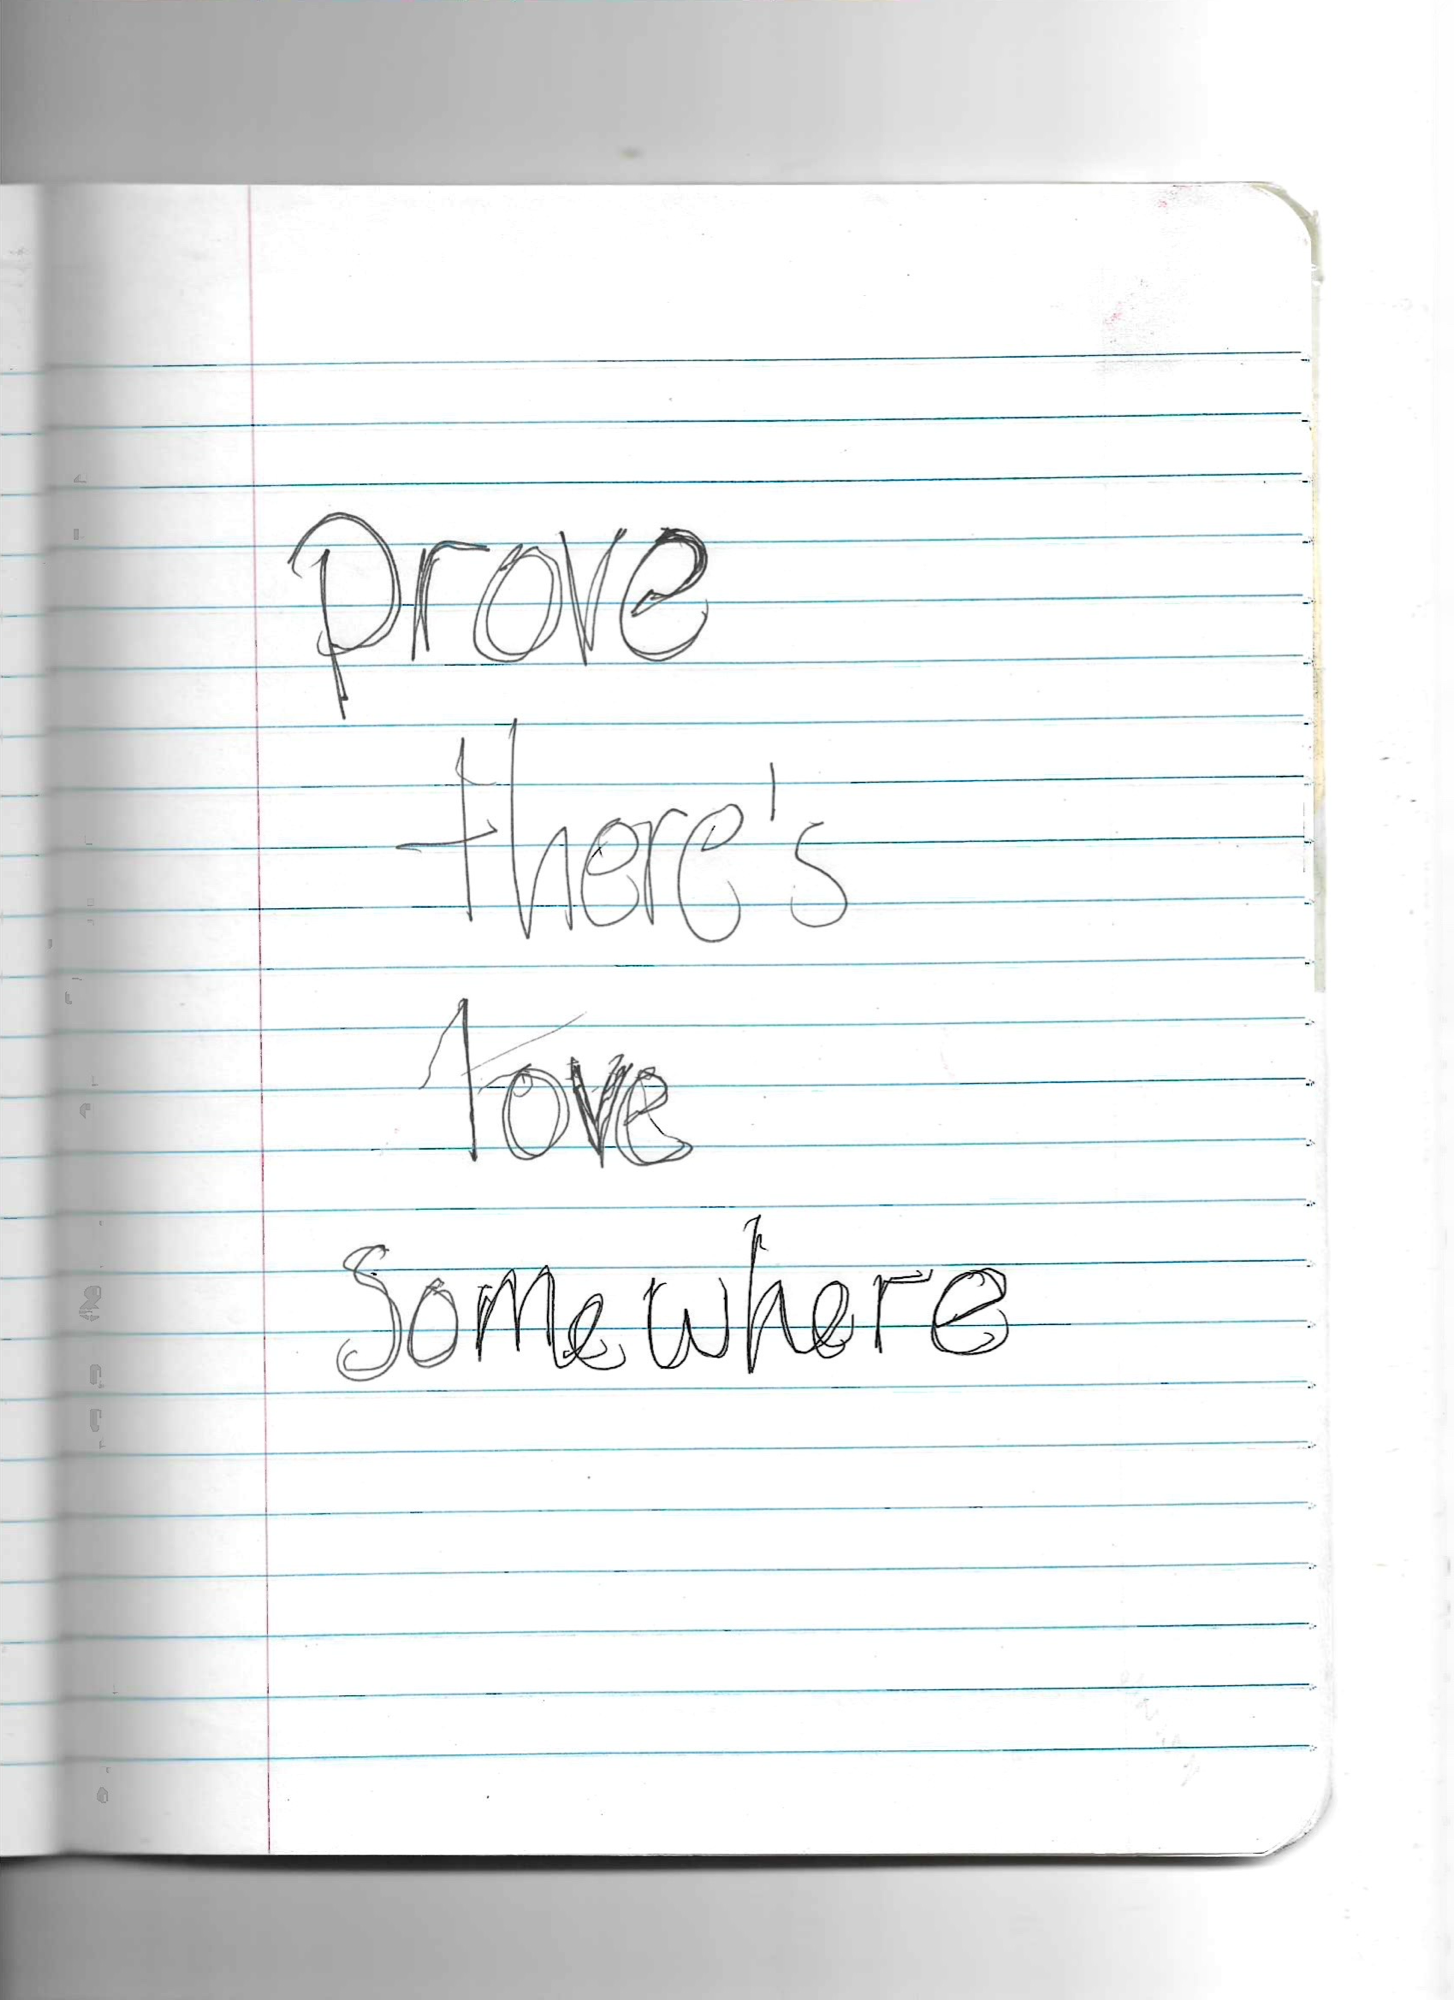 prove
there's
love
somewhere